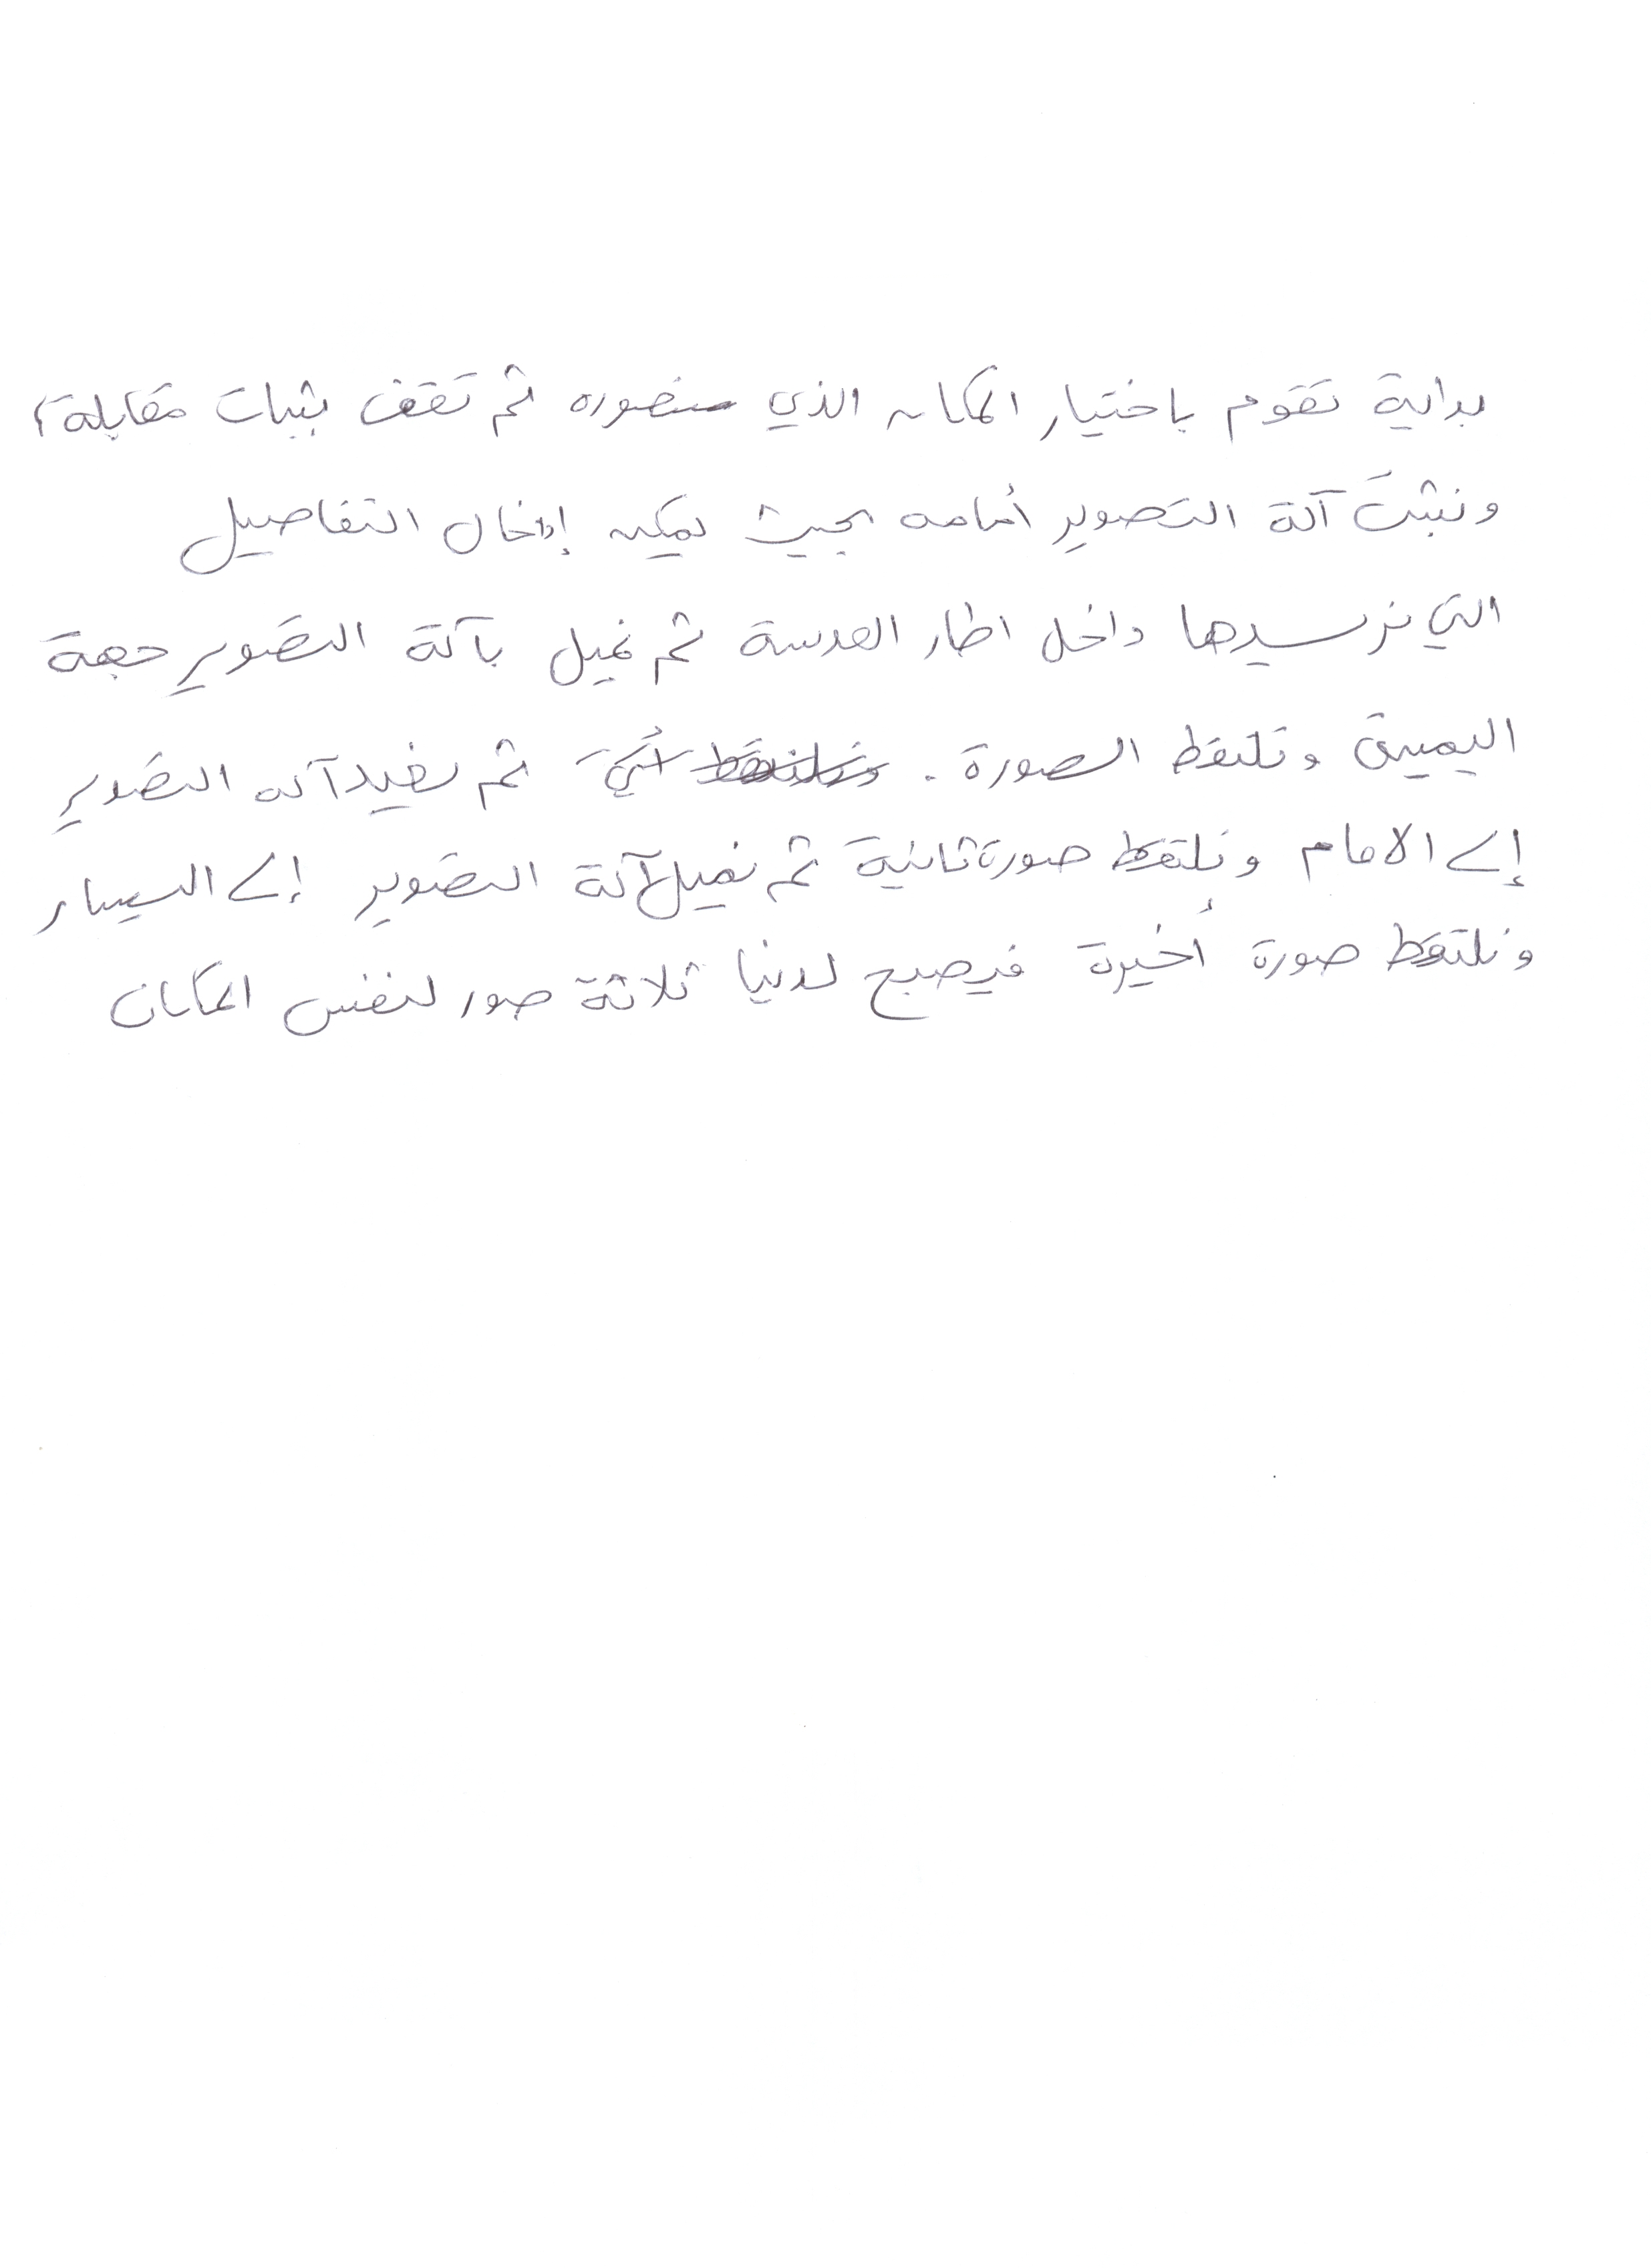 بداية نقوم باختيار المكان الذي سنصوره ثم نقف بثبات مقابلة،
ونثبت آلة التصوير أمامه بحيث يمكن إدخال التفاصيل
التي نرسيدها داخل اطار العدسة ثم نميل بآلة التصوير جهة
اليمين ونلتقط الصورة. ثم نعيد آله التصوير
إلى الامام ونلتقط صورة ثانية ثم نميل آلة التصوير إلى اليسار
ونلتقط صورة أخيرة فيصبح لدنيا ثلاثة صور لنفس المكان